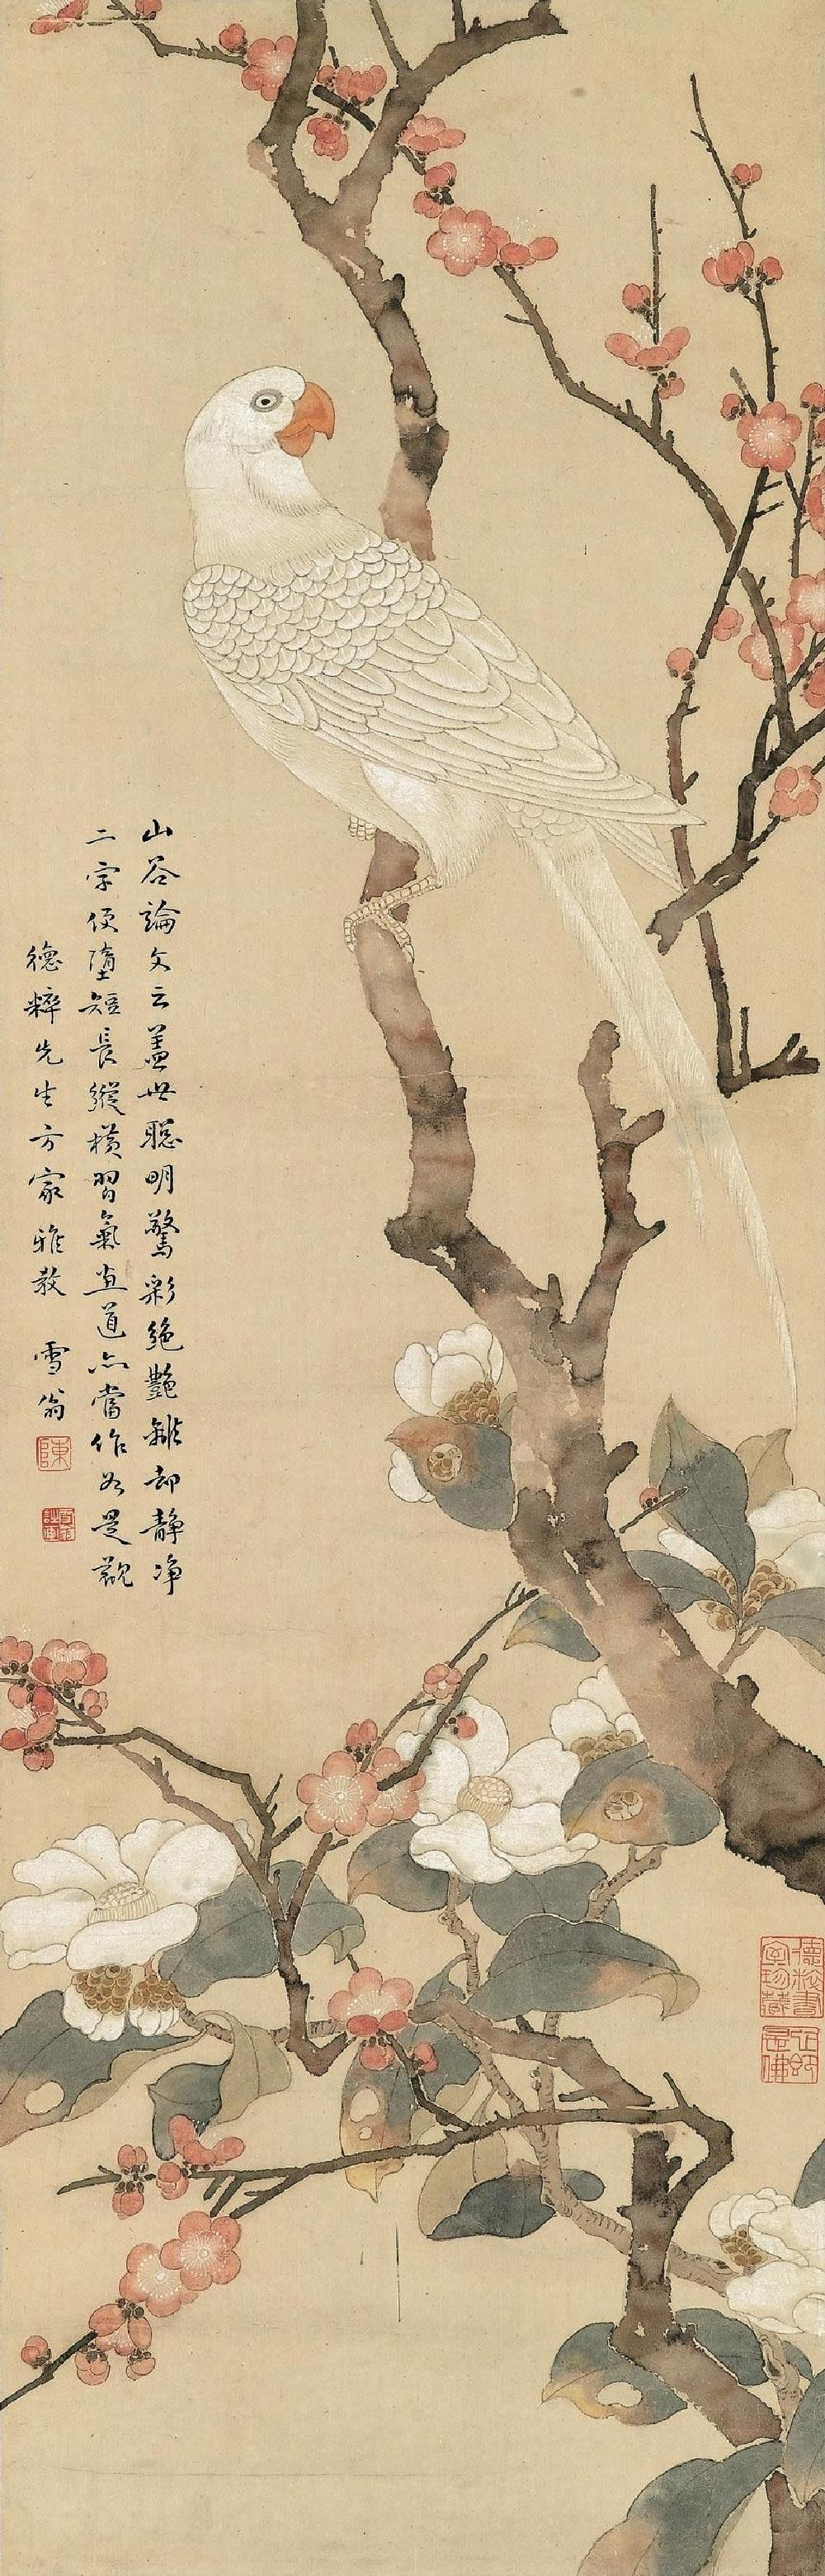 山谷論文云蓋世聰明驚彩絕艷離却靜淨
二字便墮短長縱橫習氣直道亦當作如是觀
德粹先生方家雅教 雪翁
陳
德粹書
室珍藏